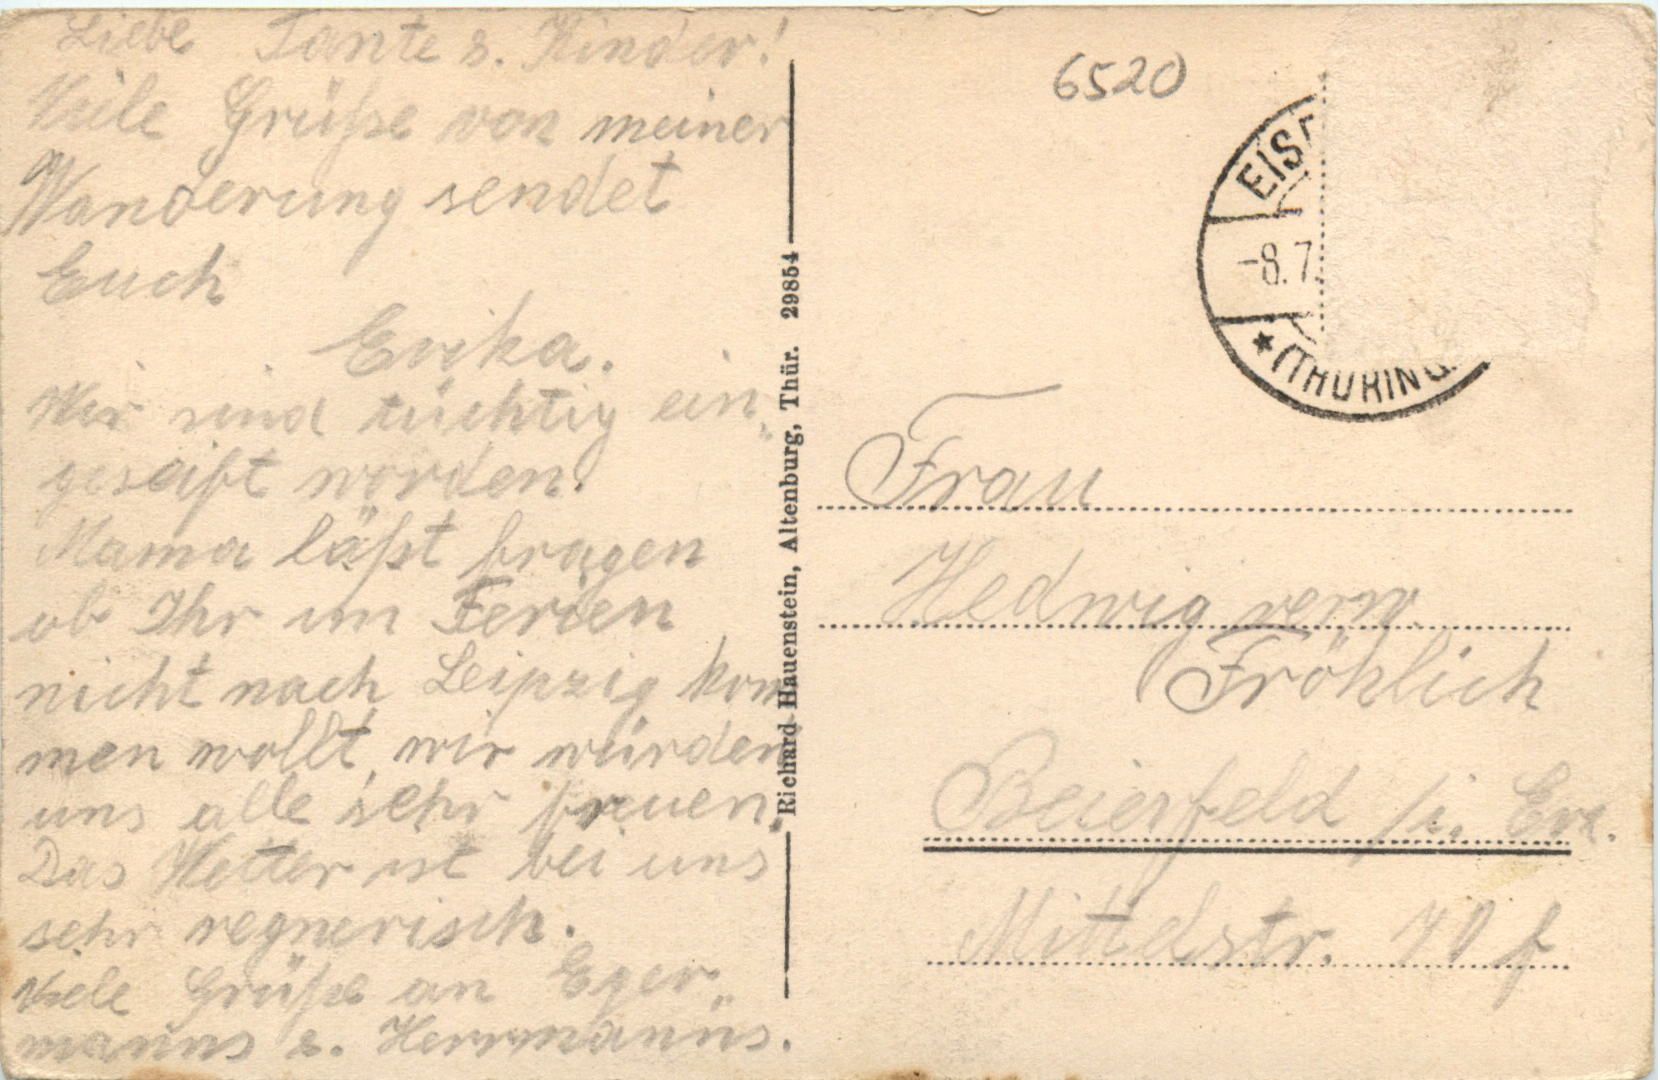 Liebe Tante u. Kinder!
Viele Grüße von meiner
Wanderung sendet
Euch
Erika.
Wir sind tüchtig ein„
geseift worden.
Mama läßt fragen
ob Ihr im Ferien
nicht nach Leipzig kom
men wollt, wir würden
uns alle sehr freuen.
Das Wetter ist bei uns
sehr regnerisch.
Viele Grüße an Eger„
manns u. Herrmanns.
Richard Hauenstein, Altenburg, Thür. 29854
6520
EISE
-8.7.
* (THÜRING.
Frau
Hedwig verw.
Fröhlich
Beierfeld /i. Erz.
Mittelstr.